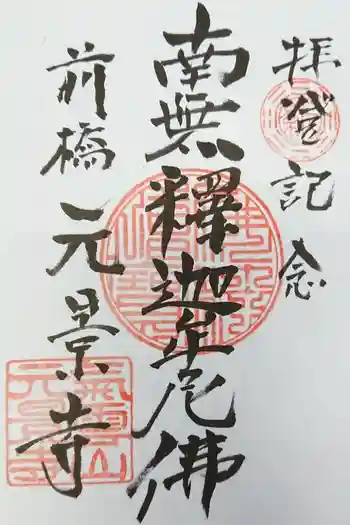 拝登記念
南無釋迦牟尼佛
前橋元景寺